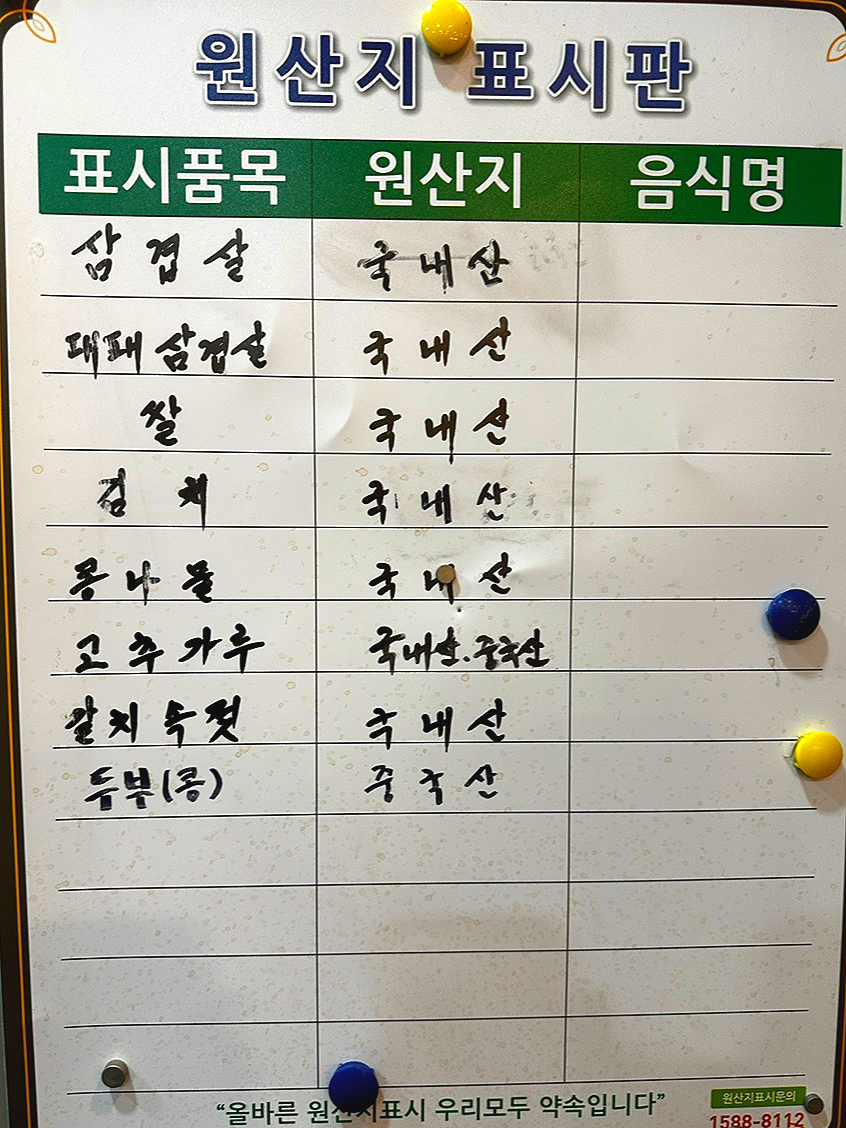 원산지 표시판
표시품목 원산지 음식명
삼겹살 국내산
대패삼겹살 국내산
쌀 국내산
김치 국내산
콩나물 국내산
고추가루 국내산.중국산
갈치속젓 국내산
두부(콩) 중국산
"올바른 원산지표시 우리모두 약속입니다"
원산지표시문의
1588-8112